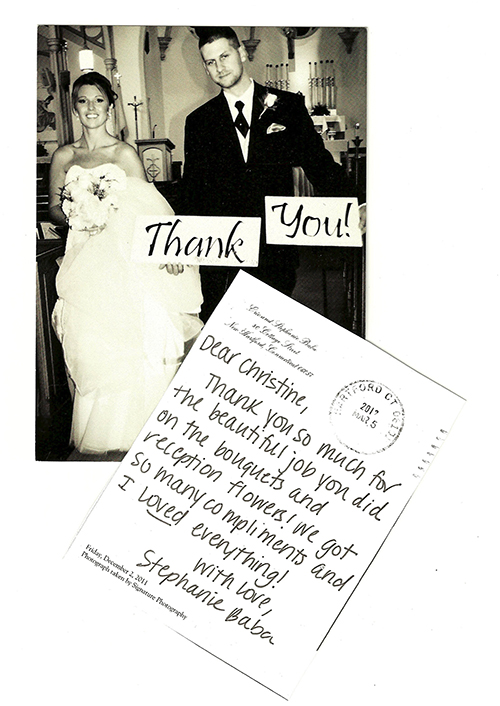 Thank
You!
Stephanie Baba
New Hartford, Connecticut
HARTFORD CT
2012
Dear Christine,
Thank you so much for
the beautiful job you did
on the bouquets and
reception flowers! We got
so many compliments and
I loved everything!
With love,
Stephanie Baba
Friday, December 2, 2011
Photograph taken by Signature Photography